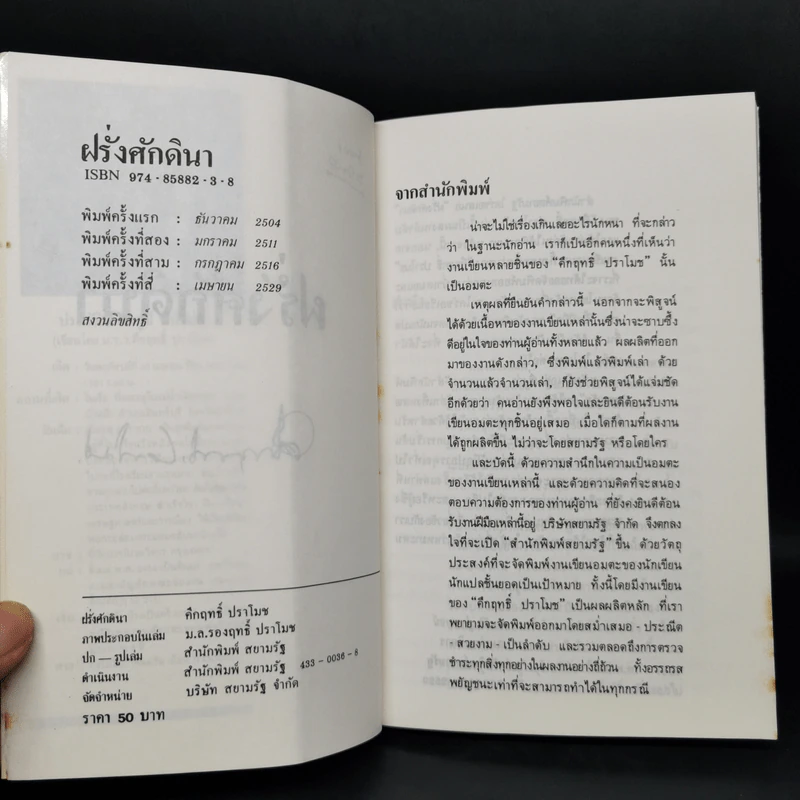 ฝรั่งศักดินา
ISBN 974-85882-3-8
พิมพ์ครั้งแรก : ธันวาคม 2504
พิมพ์ครั้งที่สอง : มกราคม 2511
พิมพ์ครั้งที่สาม : กรกฎาคม 2516
พิมพ์ครั้งที่สี่ : เมษายน 2529
สงวนลิขสิทธิ์
ฝรั่งศักดินา คึกฤทธิ์ ปราโมช
ภาพประกอบในเล่ม ม.ล.รองฤทธิ์ ปราโมช
ปก — รูปเล่ม สำนักพิมพ์ สยามรัฐ
ดำเนินงาน สำนักพิมพ์ สยามรัฐ 433-0036-8
จัดจำหน่าย บริษัท สยามรัฐ จำกัด
ราคา 50 บาท
จากสำนักพิมพ์
น่าจะไม่ใช่เรื่องเกินเลยอะไรนักหนา ที่จะกล่าว
ว่า ในฐานะนักอ่าน เราก็เป็นอีกคนหนึ่งที่เห็นว่า
งานเขียนหลายชิ้นของ “คึกฤทธิ์ ปราโมช” นั้น
เป็นอมตะ
เหตุผลที่ยืนยันคำกล่าวนี้ นอกจากจะพิสูจน์
ได้ด้วยเนื้อหาของงานเขียนเหล่านั้นซึ่งน่าจะซาบซึ้ง
ดีอยู่ในใจของท่านผู้อ่านทั้งหลายแล้ว ผลผลิตที่ออก
มาของงานดังกล่าว, ซึ่งพิมพ์แล้วพิมพ์เล่า ด้วย
จำนวนแล้วจำนวนเล่า, ก็ยังช่วยพิสูจน์ได้แจ่มชัด
อีกด้วยว่า คนอ่านยังพึงพอใจและยินดีต้อนรับงาน
เขียนอมตะทุกชิ้นอยู่เสมอ เมื่อใดก็ตามที่ผลงาน
ได้ถูกผลิตขึ้น ไม่ว่าจะโดยสยามรัฐ หรือโดยใคร
และบัดนี้ ด้วยความสำนึกในความเป็นอมตะ
ของงานเขียนเหล่านี้ และด้วยความคิดที่จะสนอง
ตอบความต้องการของท่านผู้อ่าน ที่ยังคงยินดีต้อน
รับงานฝีมือเหล่านี้อยู่ บริษัทสยามรัฐ จำกัด จึงตกลง
ใจที่จะเปิด “สำนักพิมพ์สยามรัฐ” ขึ้น ด้วยวัตถุ
ประสงค์ที่จะจัดพิมพ์งานเขียนอมตะของนักเขียน
นักแปลชั้นยอดเป็นเป้าหมาย ทั้งนี้โดยมีงานเขียน
ของ “คึกฤทธิ์ ปราโมช” เป็นผลผลิตหลัก ที่เรา
พยายามจะจัดพิมพ์ออกมาโดยสม่ำเสมอ - ประณีต
- สวยงาม - เป็นลำดับ และรวมตลอดถึงการตรวจ
ชำระทุกสิ่งทุกอย่างในผลงานอย่างถี่ถ้วน ทั้งอรรถรส
พยัญชนะเท่าที่จะสามารถทำได้ในทุกกรณี